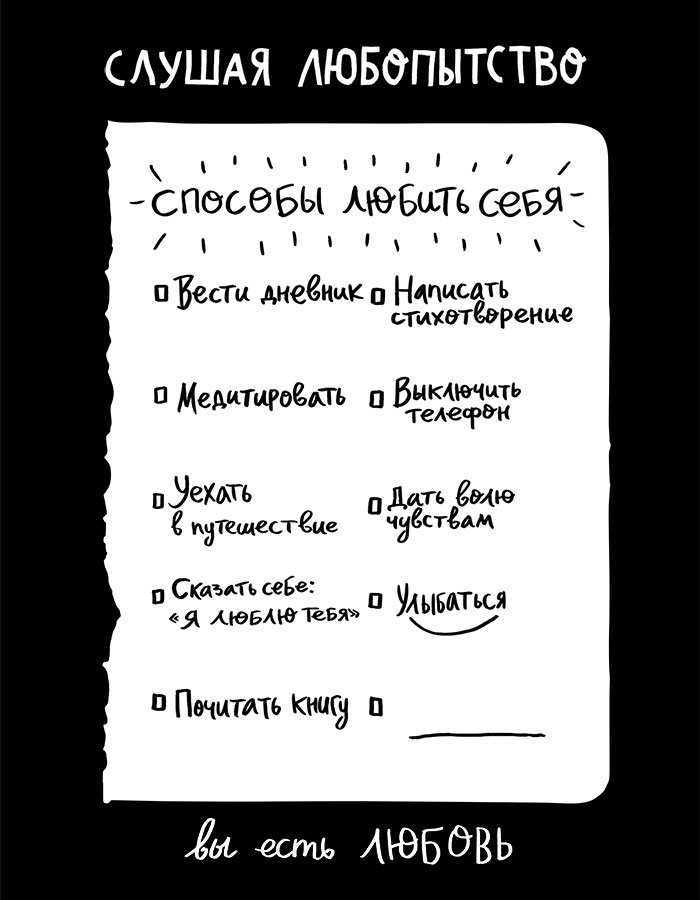 СЛУШАЯ ЛЮБОПЫТСТВО
-СПОСОБЫ ЛЮБИТЬ СЕБЯ-
Вести дневник
Написать
стихотворение
Медитировать
Выключить
телефон
Уехать
в путешествие
Дать волю
чувствам
Сказать себе:
«Я ЛЮБЛЮ ТЕБЯ»
Улыбаться
Почитать книгу
вы есть ЛЮБОВЬ